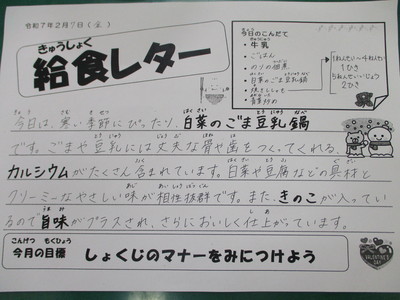 令和7年2月7日(金)
きゅうしょく
給食レター
今日のこんだて
ぎゅうにゅう
・牛乳
・ごはん
・のりの佃煮
・白菜のごま豆乳鍋
・焼きししゃも
・青菜炒め
1ねんせい〜4ねんせい
1ぴき
5ねんせいいじょう
2ひき
今日は、寒い季節にぴったり、白菜のごま豆乳鍋
です。ごまや豆乳には丈夫な骨や歯をつくってくれる、
カルシウムがたくさん含まれています。白菜や豆腐などの具材と
クリーミーなやさしい味が相性抜群です。また、きのこが入ってい
るので旨味がプラスされ、さらにおいしく仕上がっています。
こんげつ もくひょう
今月の目標
しょくじのマナーをみにつけよう
VALENTINE'S DAY